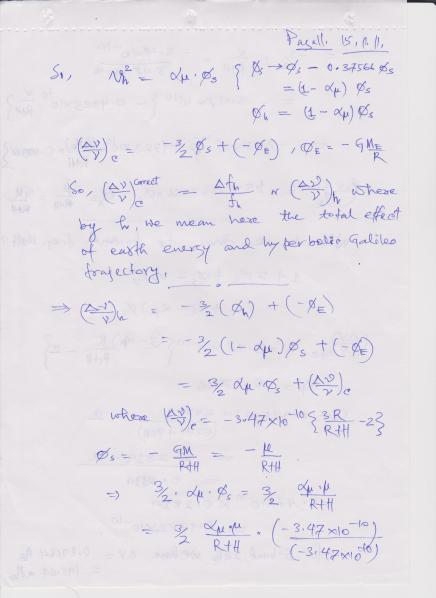 Pagall. 15.11.11.
So, v_h^2 = αμ·Φs { Φs → Φs − 0.37566 Φs
= (1 − αμ) Φs
Φh = (1 − αμ) Φs
(Δν/ν)_c = −3/2 Φs + (−ΦE) , ΦE = −GME/R
So, (Δν/ν)_c^correct = Δfh/fh ≈ (Δν/ν)_h where
by h, we mean here the total effect
of earth energy and hyperbolic Galileo
trajectory.
⇒ (Δν/ν)_h = −3/2 (Φh) + (−ΦE)
= −3/2 (1 − αμ) Φs + (−ΦE)
= 3/2 αμ·Φs + (Δν/ν)_c
where (Δν/ν)_c = −3.47×10^-10 { 3R/R+H − 2 }
Φs = − GM/R+H = − μ/R+H
⇒ 3/2 · αμ · Φs = 3/2 αμ·μ/R+H
= 3/2 αμ·μ/R+H · (−3.47×10^-10)/(−3.47×10^-10)